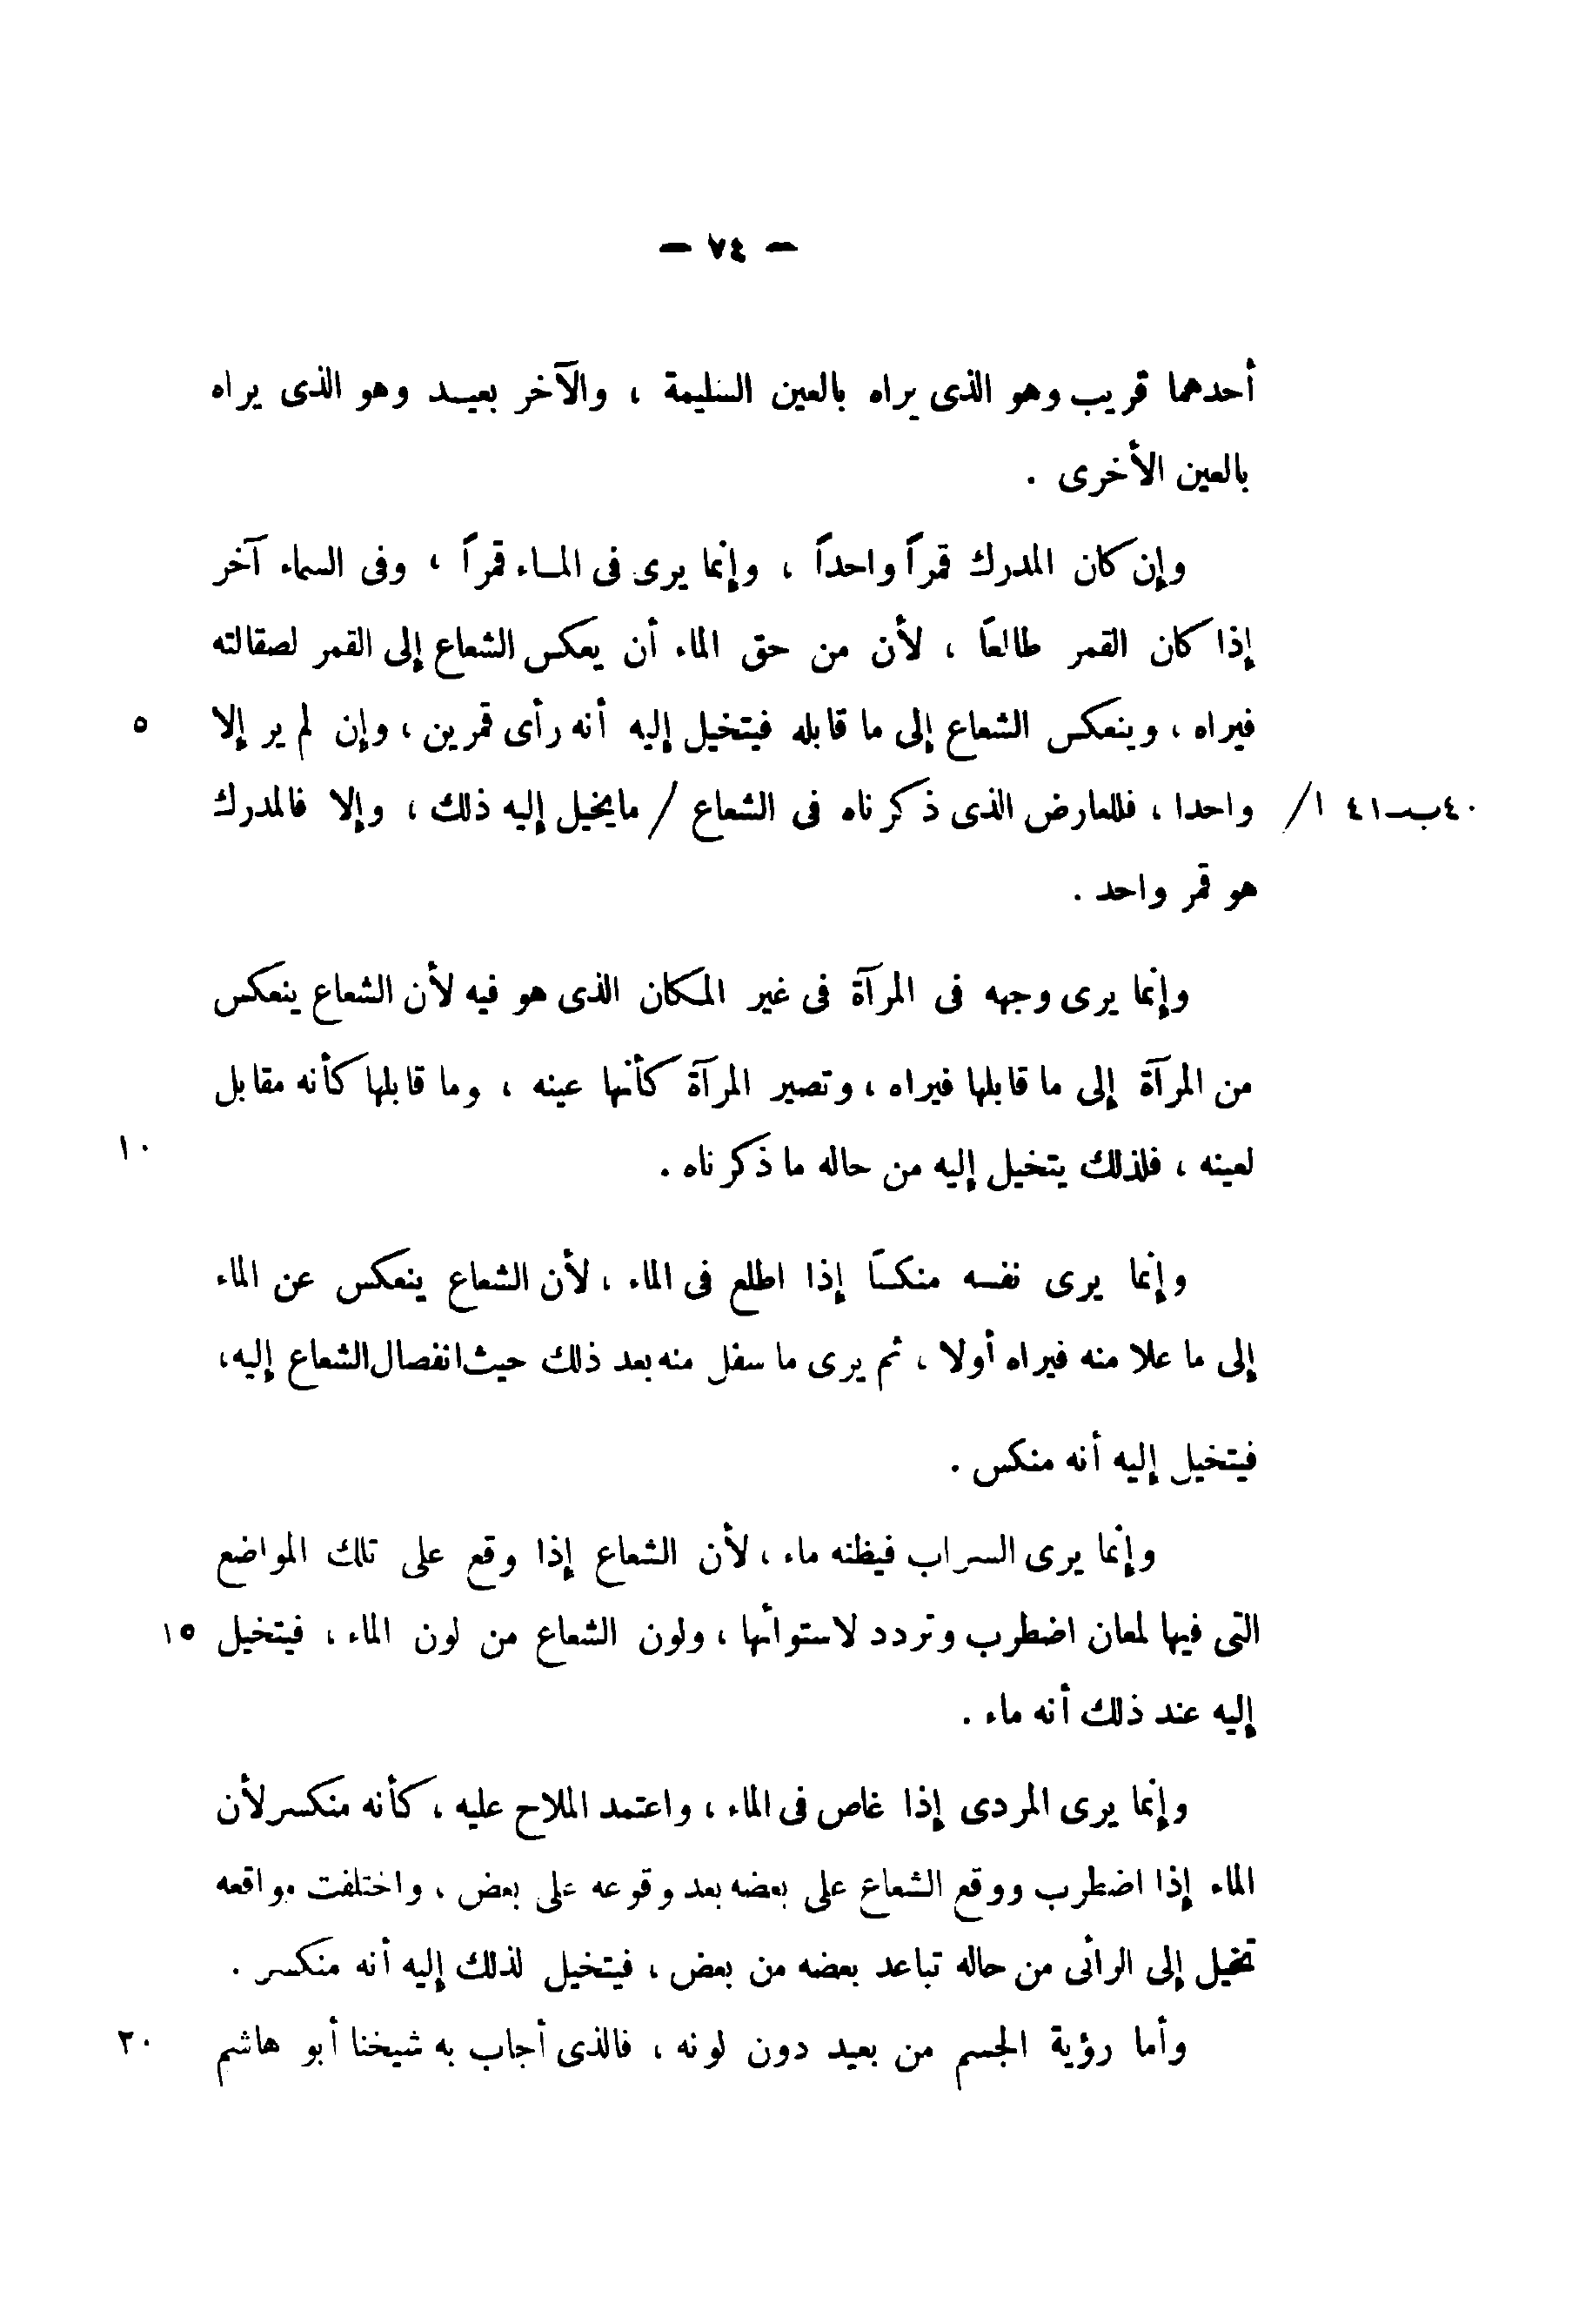 — ٧٤ —
أحدهما قريب وهو الذى يراه بالعين السليمة ، والآخر بعيــد وهو الذى يراه
بالعين الأخرى .
وإن كان المدرك قمراً واحداً ، وإنما يرى فى المــاء قمراً ، وفى السماء آخر
إذا كان القمر طالعًا ، لأن من حق الماء أن يعكس الشعاع إلى القمر لصقالته
فيراه ، وينعكس الشعاع إلى ما قابله فيتخيل إليه أنه رأى قمرين ، وإن لم ير إلا ٥
٤٠ب–٤١ ا/ واحدا ، فللعارض الذى ذكرناه فى الشعاع / مايخيل إليه ذلك ، وإلا فالمدرك
هو قمر واحد .
وإنما يرى وجهه فى المرآة فى غير المكان الذى هو فيه لأن الشعاع ينعكس
من المرآة إلى ما قابلها فيراه ، وتصير المرآة كأنها عينه ، وما قابلها كأنه مقابل
لعينه ، فلذلك يتخيل إليه من حاله ما ذكرناه . ١٠
وإنما يرى نفسه منكسًا إذا اطلع فى الماء ، لأن الشعاع ينعكس عن الماء
إلى ما علا منه فيراه أولا ، ثم يرى ما سفل منه بعد ذلك حيث انفصال الشعاع إليه،
فيتخيل إليه أنه منكس .
وإنما يرى السراب فيظنه ماء ، لأن الشعاع إذا وقع على تلك المواضع
التى فيها لمعان اضطرب وتردد لاستوائها ، ولون الشعاع من لون الماء ، فيتخيل ١٥
إليه عند ذلك أنه ماء .
وإنما يرى المردى إذا غاص فى الماء ، واعتمد الملاح عليه ، كأنه منكسر لأن
الماء إذا اضطرب ووقع الشعاع على بعضه بعد وقوعه على بعض ، واختلفت مواقعه
تخيل إلى الرائى من حاله تباعد بعضه من بعض ، فيتخيل لذلك إليه أنه منكسر .
وأما رؤية الجسم من بعيد دون لونه ، فالذى أجاب به شيخنا أبو هاشم ٢٠